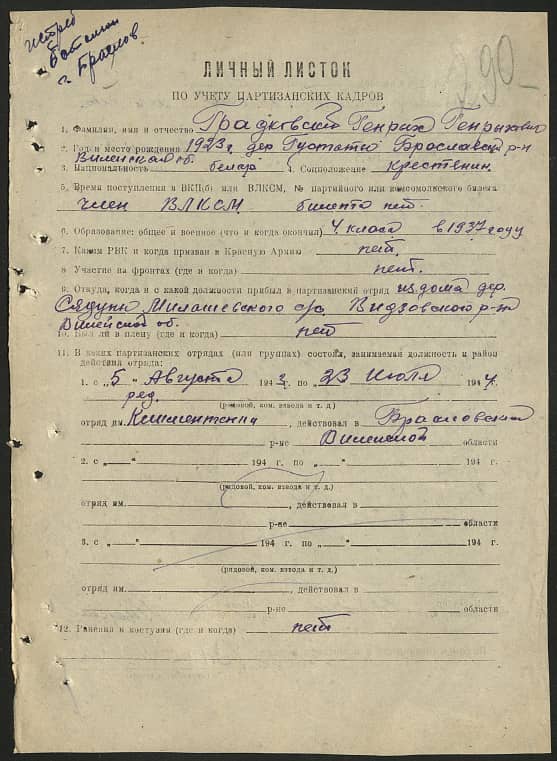 истреб
батальон
г. Браслов.
290
ЛИЧНЫЙ ЛИСТОК
ПО УЧЕТУ ПАРТИЗАНСКИХ КАДРОВ
1. Фамилия, имя и отчество Градковский Генрих Генрихович
2. Год и место рождения 1923 г дер Густаты Браславский р-н
Вилейская об.
3. Национальность белар 4. Соцположение крестянин
5. Время поступления в ВКП(б) или ВЛКСМ, № партийного или комсомолького билета
член ВЛКСМ билета нет.
6. Образование: общее и военное (что и когда окончил) 4 класа в 1937 году
7. Каким РВК и когда призван в Красную Армию нет.
8 Участие на фронтах (где и когда) нет.
9. Откуда, когда и с какой должности прибыл в партизанский отряд из дома дер.
Милашевского с/с. Видзовского р-на
Вилейской об.
10. Был ли в плену (где и когда) нет
11. В каких партизанских отрядах (или группах) состоял, занимаемая должность и район
действия отряда:
1. с „5" Августа 1943 г. по „23 Июля 1944 г.
ряд.
(рядовой, ком. взвода и т. д.)
отряд им. , действовал в Брасловский
р-не Вилейской области
2. с „ " 194 г. по „ " 194 г.
(рядовой, ком. взвода и т. д.)
отряд им. , действовал в
р-не области
3. с „ " 194 г. по „ " 194 г.
(рядовой, ком. взвода и т. д.)
отряд им. , действовал в
р-не области
12. Ранения и контузия (где и когда) нет